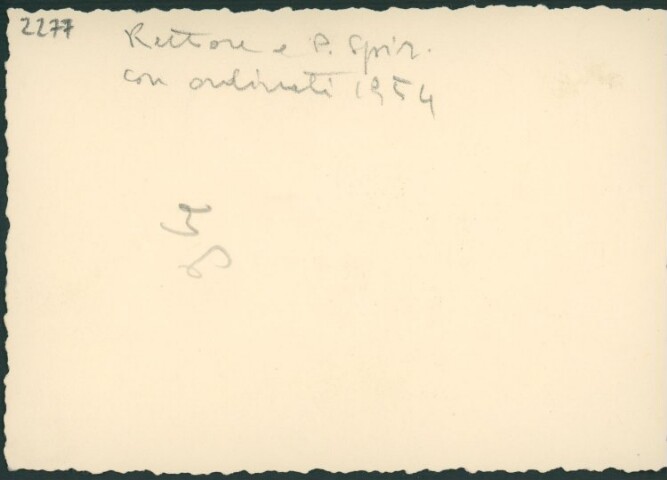 2277
Rettore e P. Spir.
con ordinati 1954
5
8